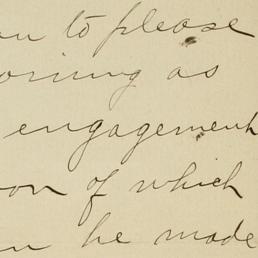 you to please
morning as
engagement
son of which
can be made